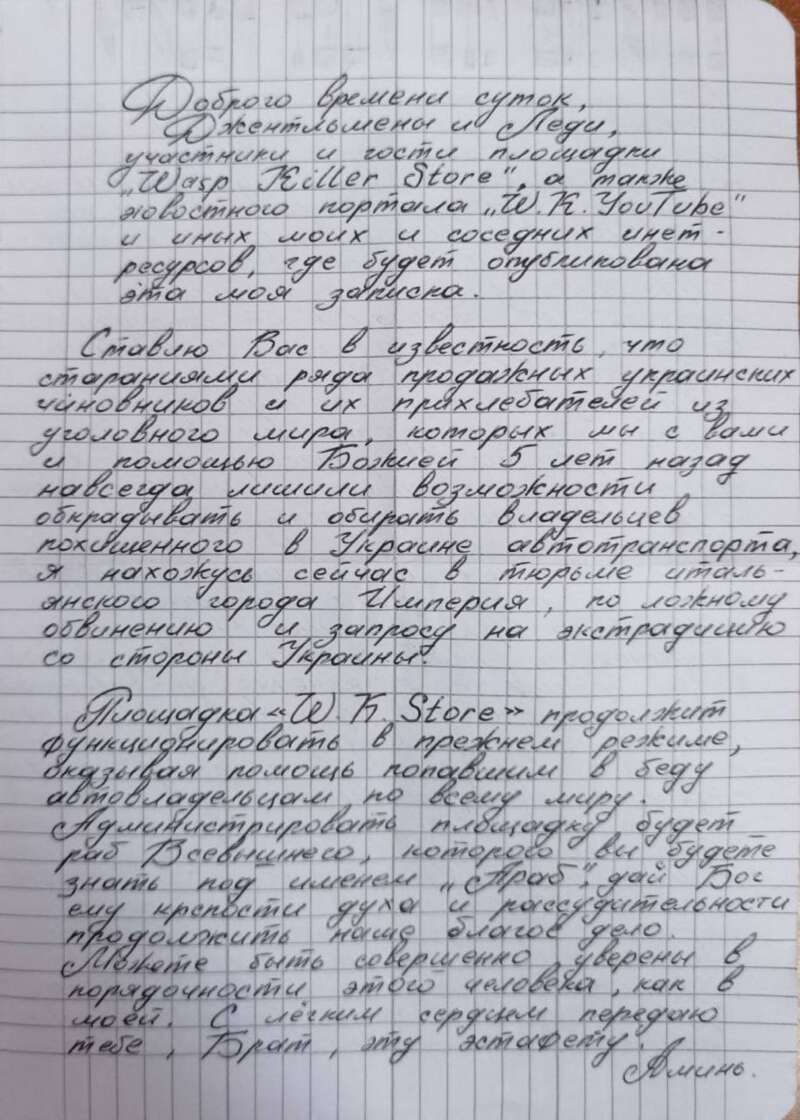 Доброго времени суток,
Джентльмены и Леди,
участники и гости площадки
„Wasp Killer Store", а также
новостного портала „W.K. YouTube"
и иных моих и соседних инет-
ресурсов, где будет опубликована
эта моя записка.
Ставлю Вас в известность, что
стараниями ряда продажных украинских
чиновников и их прихлебателей из
уголовного мира, которых мы с вами
и помощью Божией 5 лет назад
навсегда лишили возможности
обкрадывать и обирать владельцев
похищенного в Украине автотранспорта,
я нахожусь сейчас в тюрьме италь-
янского города Империя, по ложному
обвинению и запросу на экстрадицию
со стороны Украины.
Площадка «W.K. Store» продолжит
функционировать в прежнем режиме,
оказывая помощь попавшим в беду
автовладельцам по всему миру.
Администрировать площадку будет
раб Всевышнего, которого вы будете
знать под именем „Араб", дай Бог
ему крепости духа и рассудительности
продолжить наше благое дело.
Можете быть совершенно уверены в
порядочности этого человека, как в
моей. С лёгким сердцем передаю
тебе, Брат, эту эстафету.
Аминь.